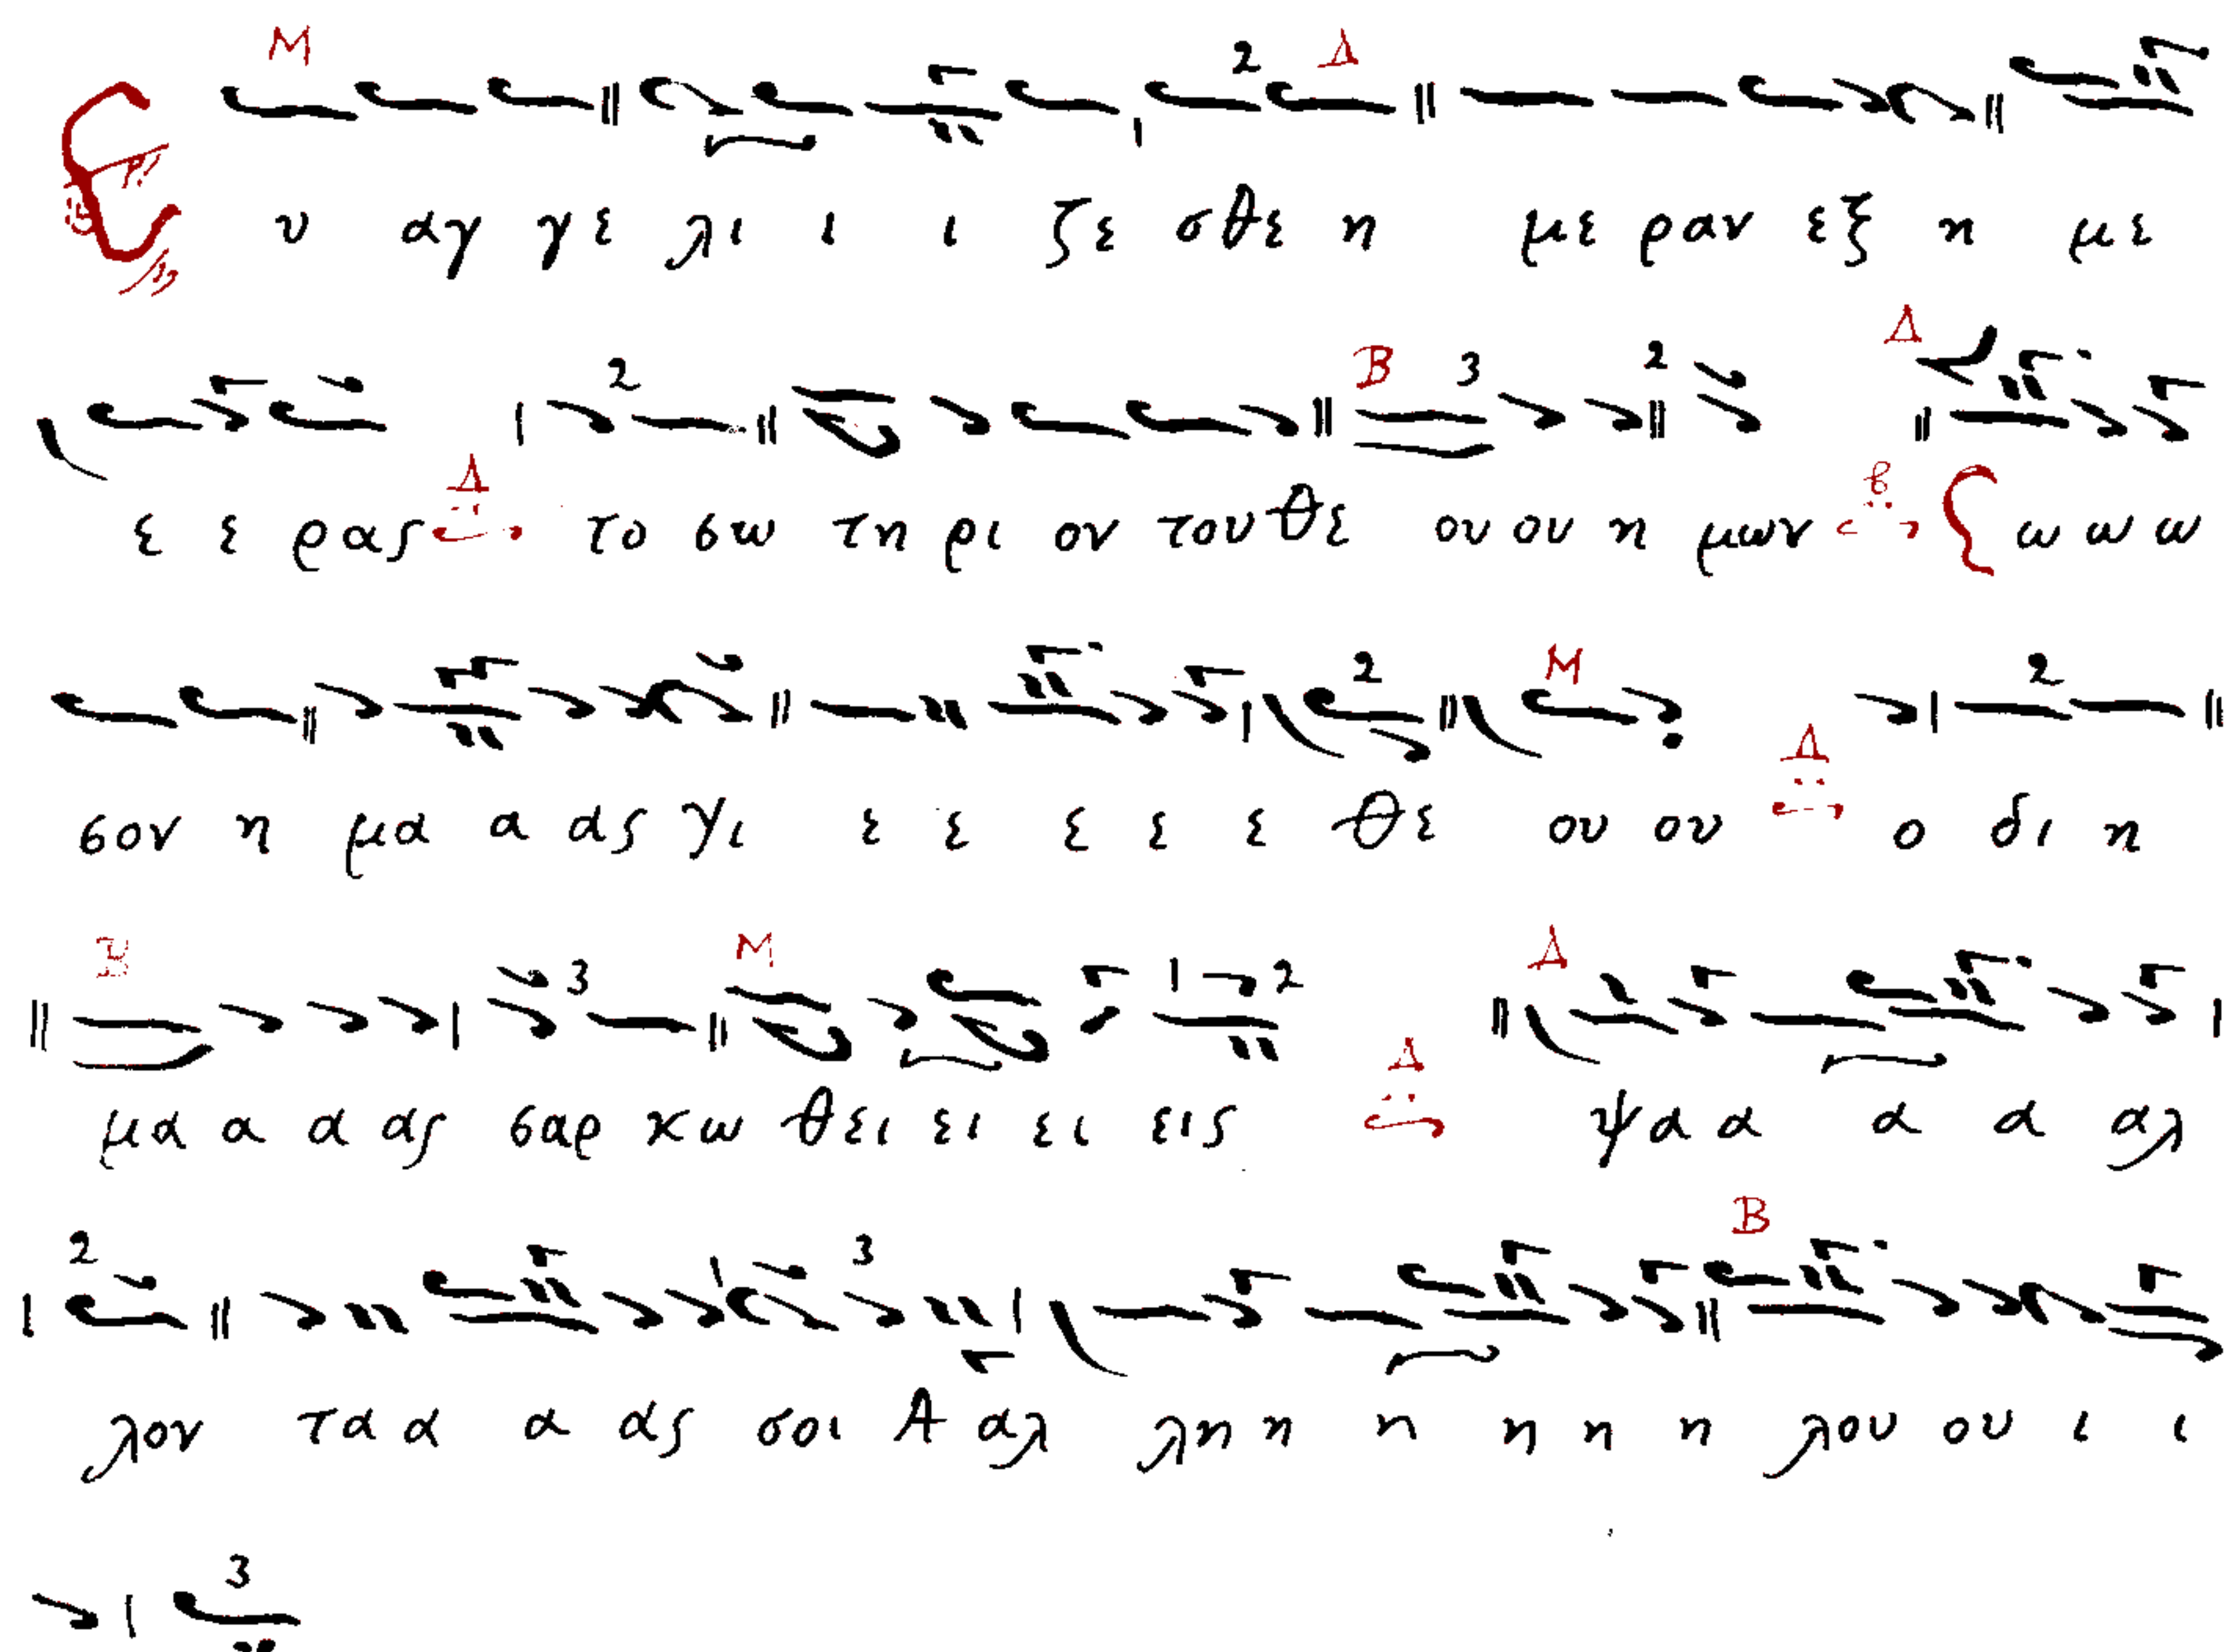 Μ 2 Δ
Ευ αγ γε λι ι ι ζε σθε η με ραν εξ η με
2 Β 3 2 Δ
ε ε ρας Δ το σω τη ρι ον του θε ου ου η μων β Σω ω ω
2 Μ 2
σον η μα α ας γι ε ε ε ε ε θε ου ου Δ ο δι η
Β 3 Μ 1 2 Δ
μα α α ας σαρ κω θει ει ει εις Δ ψα α α α αλ
2 3 Β
λον τα α α ας σοι Α αλ λη η η η η η λου ου ι ι
3